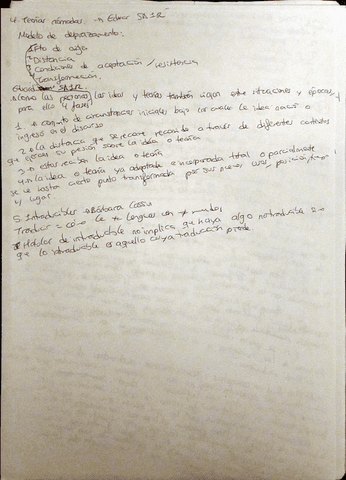 4. Teorías nómadas. → Edward SAID
Modelo de desplazamiento:
1. Pto de origen
2. Distancia
3. Condiciones de aceptación / resistencia
4. Transformación.
SAID
Como las personas, las ideas y teorías también viajan entre situaciones y épocas,
para ello 4 fases
1. → conjunto de circunstancias iniciales bajo las cuales la idea nació o
ingresó en el discurso
2. → la distancia que se recorre a través de diferentes contextos
que ejercen su presión sobre la idea o teoría
3. → recibir la idea o teoría
4. → la idea o teoría ya adaptada e incorporada total o parcialmente
se ve hasta cierto punto transformada por sus nuevos usos, posición
y lugar.
5. Intraducibles → Bárbara Cassin
Traducir = lenguas con ≠ mundos
Hablar de intraducible no implica que haya algo no traducible si no
que lo intraducible es aquello cuya traducción puede